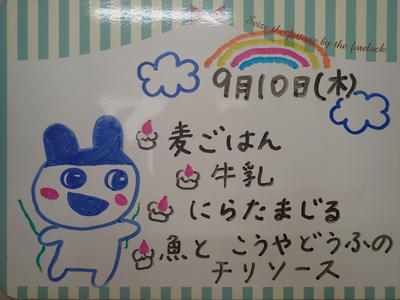 Seize the fortune by the forelock.
9月10日(木)
麦ごはん
牛乳
にらたまじる
魚と こうやどうふの
チリソース